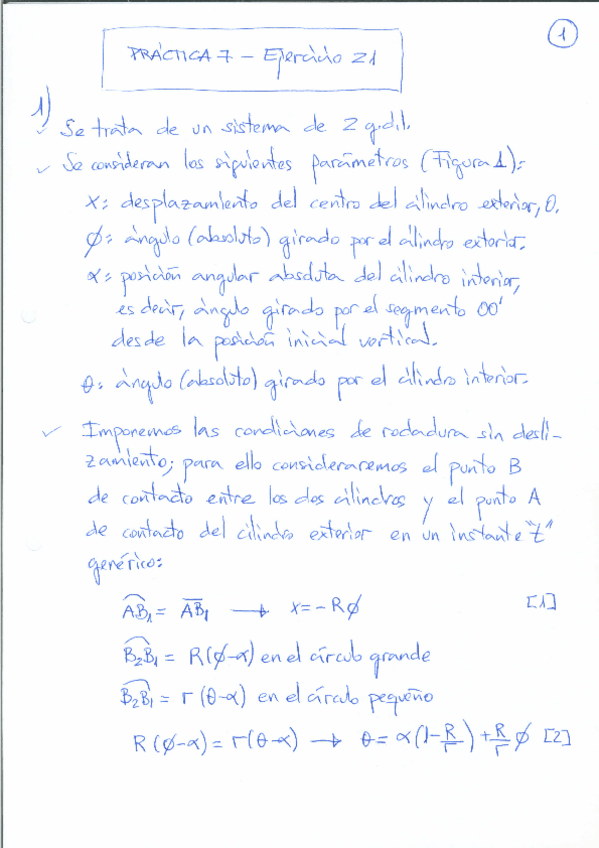 1
PRÁCTICA 7 – Ejercicio 21
1)
✓ Se trata de un sistema de 2 g.d.l.
✓ Se consideran los siguientes parámetros (Figura 1):
x: desplazamiento del centro del cilindro exterior, O.
ϕ: ángulo (absoluto) girado por el cilindro exterior.
α: posición angular absoluta del cilindro interior,
es decir, ángulo girado por el segmento OO'
desde la posición inicial vertical.
θ: ángulo (absoluto) girado por el cilindro interior.
✓ Imponemos las condiciones de rodadura sin desli-
zamiento; para ello consideraremos el punto B
de contacto entre los dos cilindros y el punto A
de contacto del cilindro exterior en un instante "t"
genérico:
A͡B₁ = A̅B̅₁ → x = - Rϕ [1]
B₂͡B₁ = R(ϕ-α) en el círculo grande
B₂͡B₁ = r (θ-α) en el círculo pequeño
R(ϕ-α) = r(θ-α) → θ = α(1-R/r) + R/r ϕ [2]